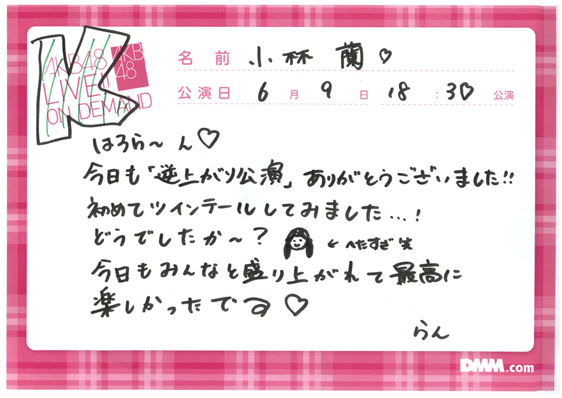 K
AKB48
LIVE
ON DEMAND
AKB
48
名前 小林 蘭♡
公演日 6月9日 18:30 公演
はろら〜ん♡
今日も「逆上がり公演」ありがとうございました!!
初めてツインテールしてみました...!
どうでしたか〜? ←へたすぎ 笑
今日もみんなと盛り上がれて最高に
楽しかったです♡
らん
DMM.com